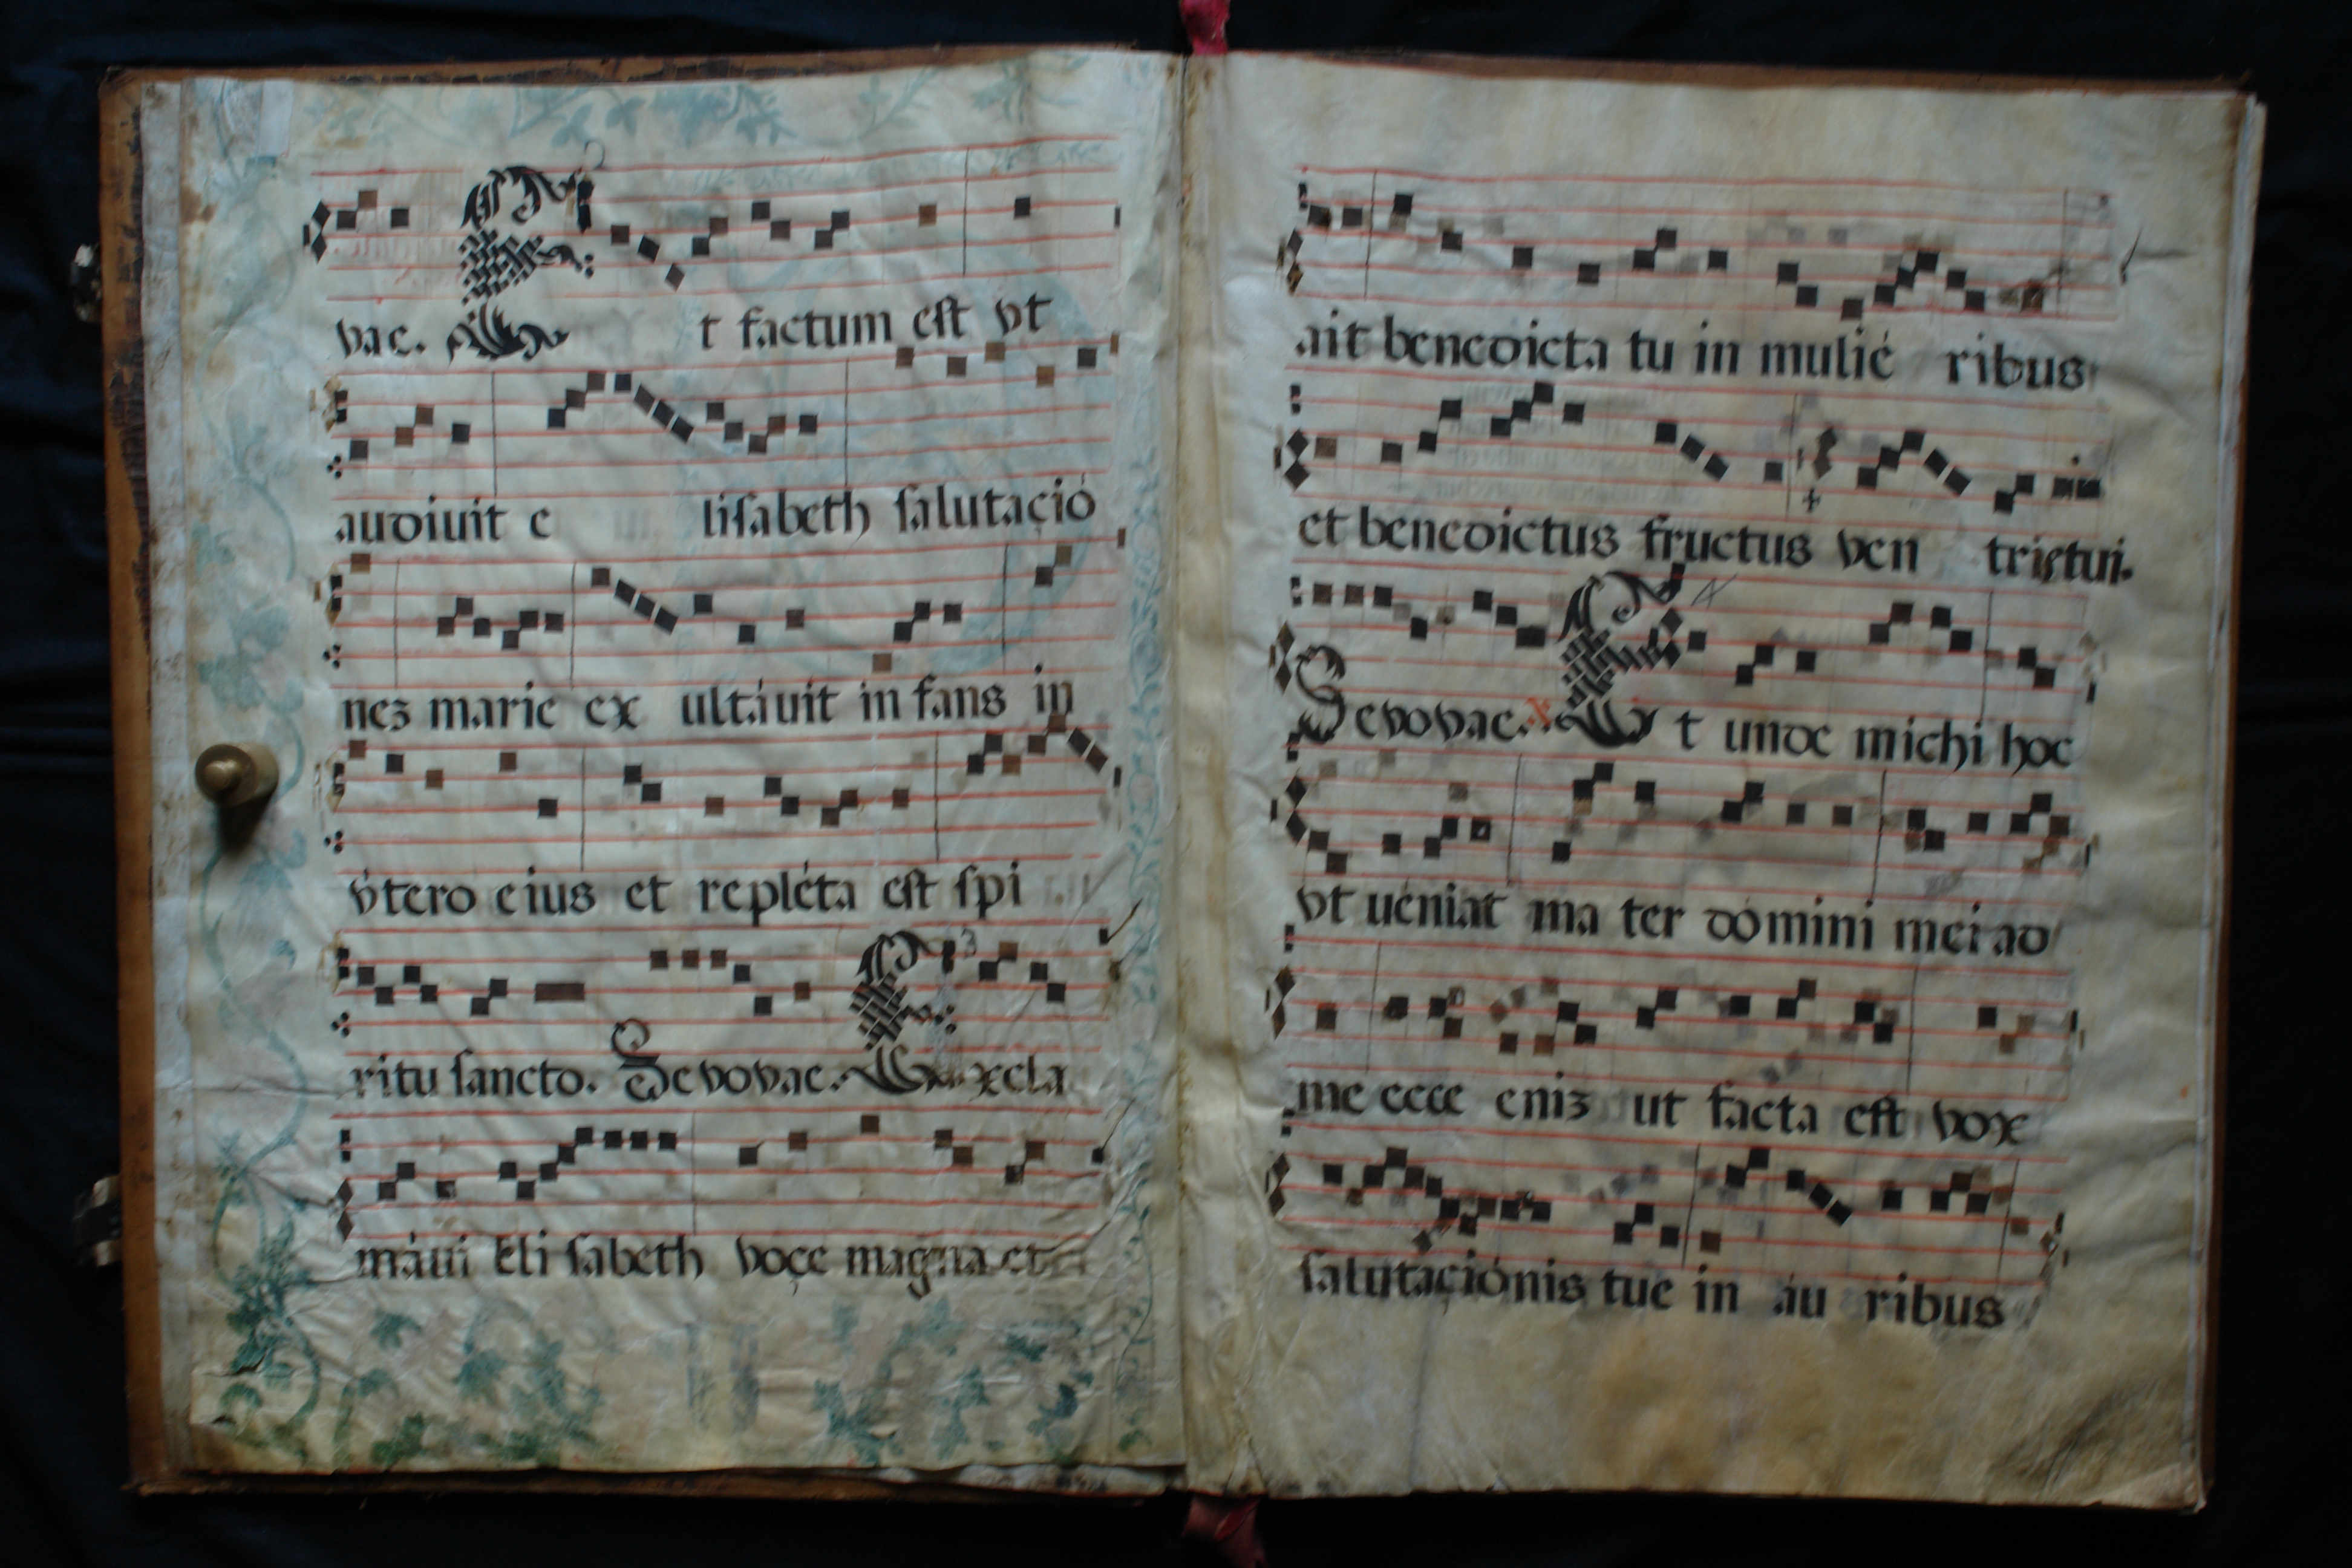 vac. Et factum est vt
audiuit e lisabeth salutació
nez marie ex ultáuit in fans in
vtero eius et repléta est spi
ritu sancto. Seuouae. Excla
máui Eli sabeth voçe magna et
ait benedicta tu in mulié ribus
et benedictus fructus ven tris tui.
Seuouae. Et unde michi hoc
vt uéniat ma ter dómini mei ad
me ecce eniz ut facta est vox
salutaçiónis tue in áu ribus